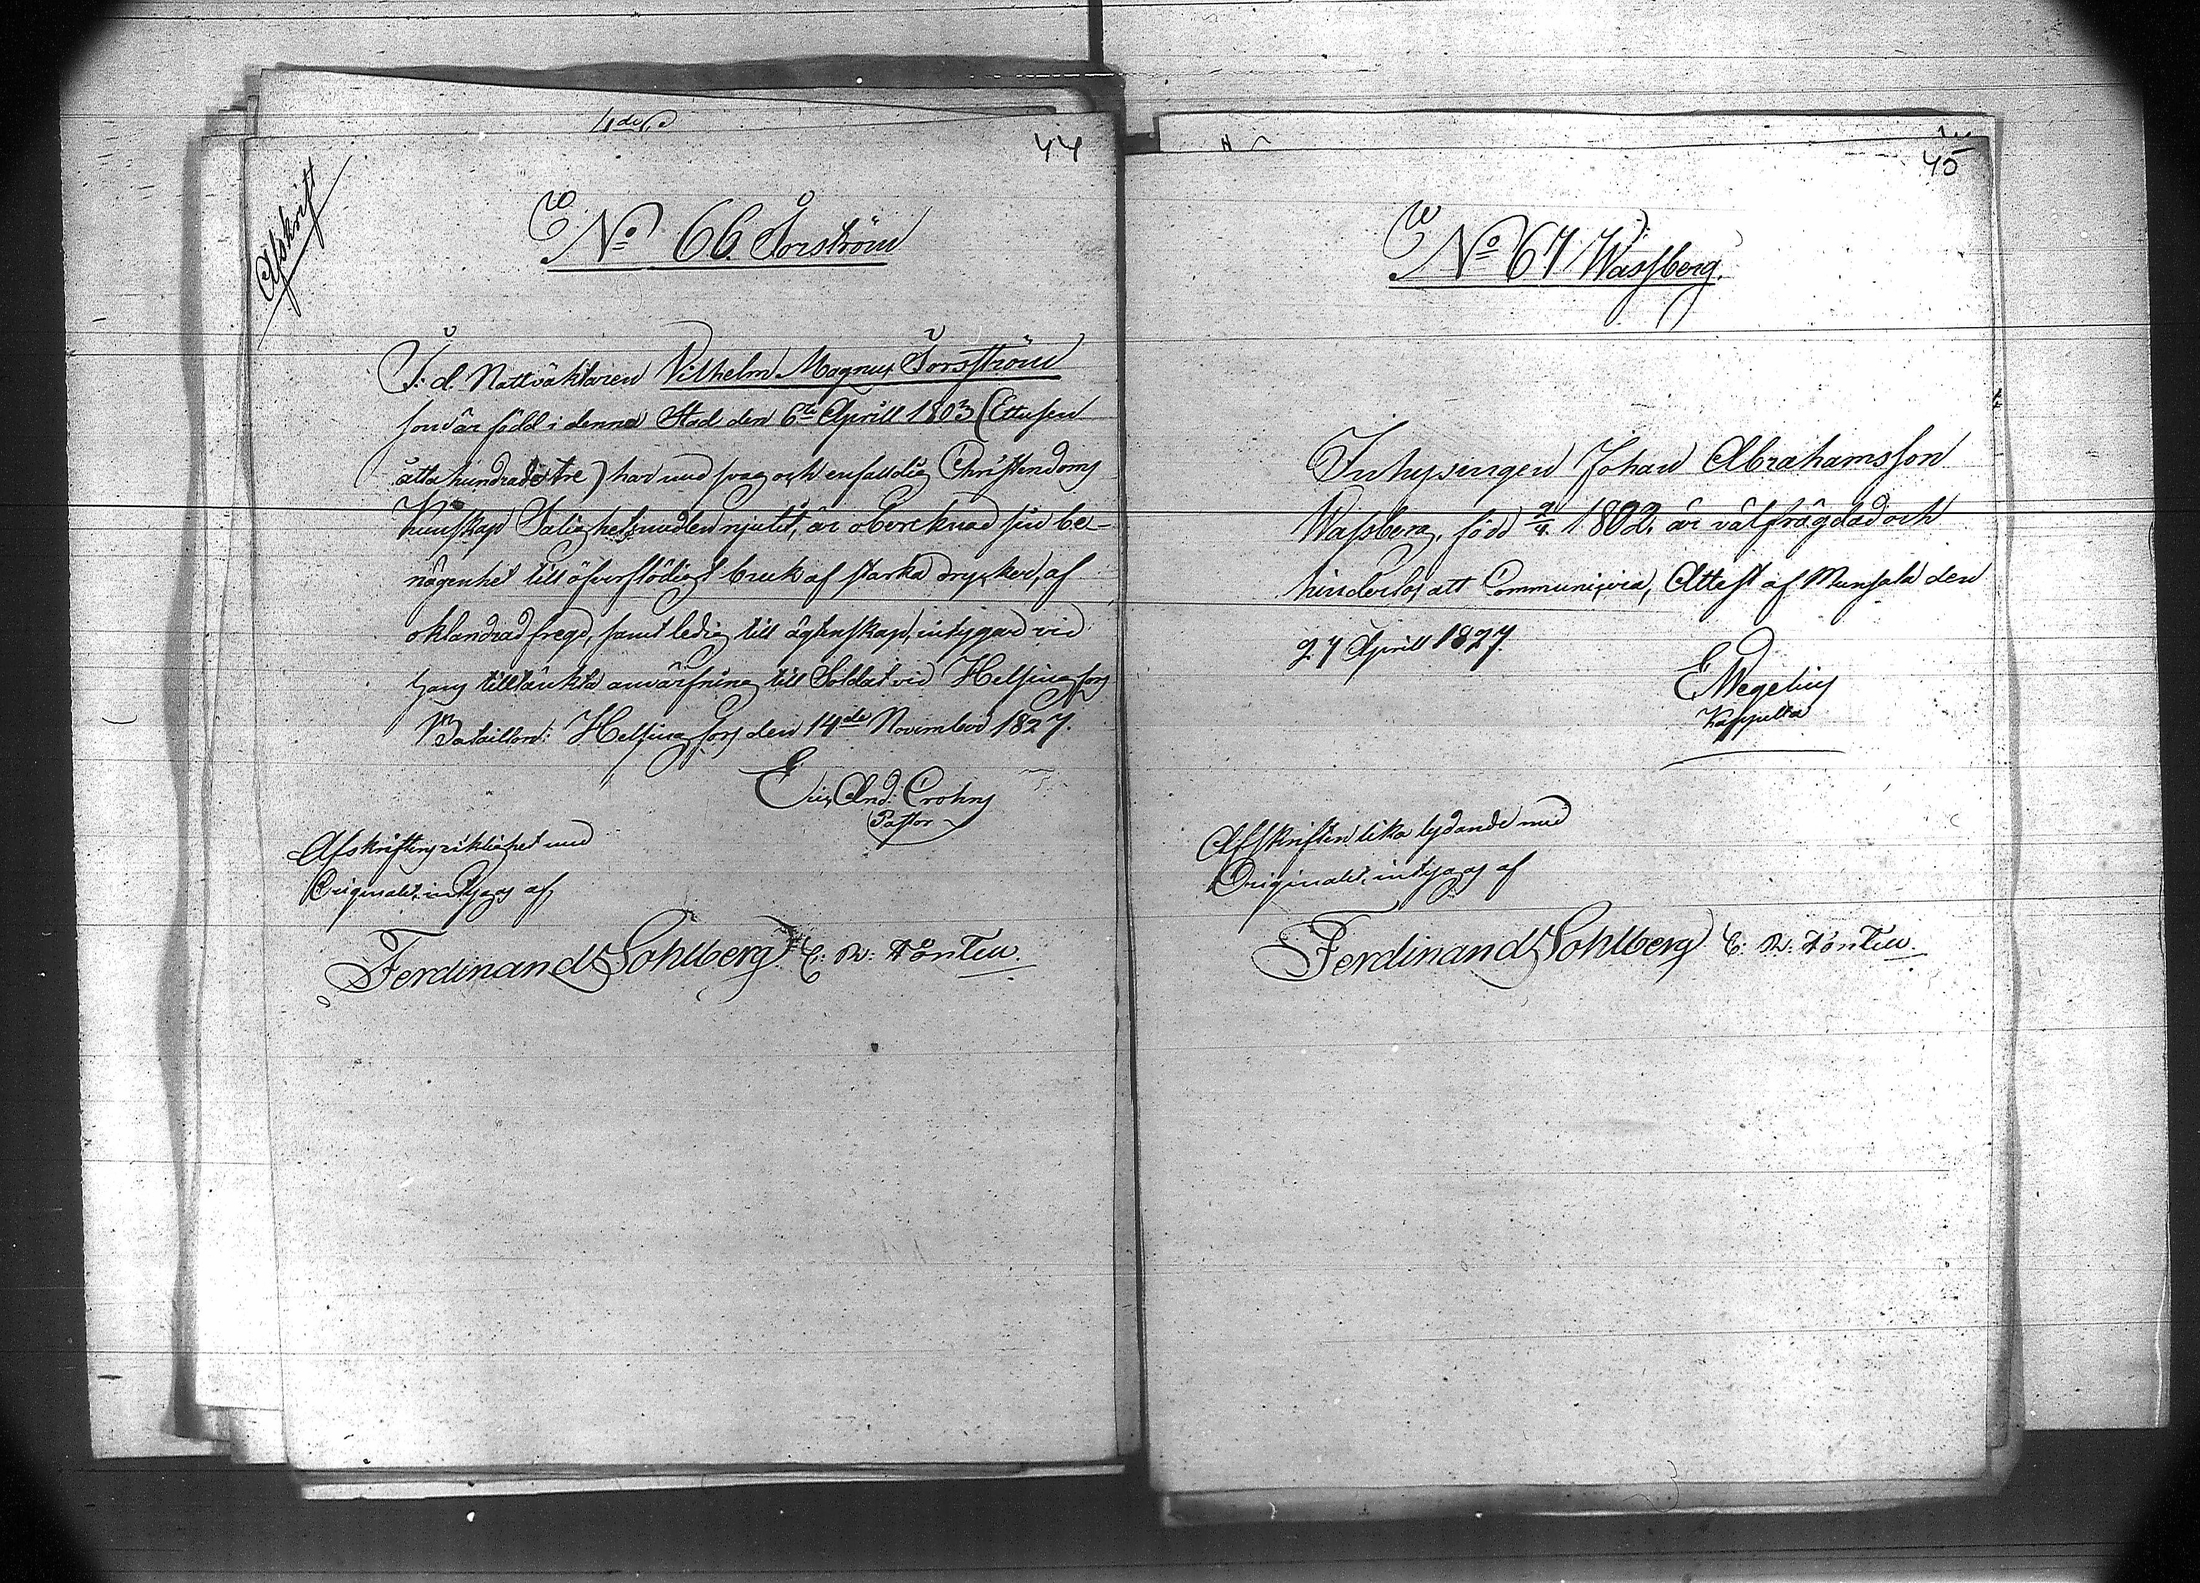 44
Afskrift
No 66 Forström
F: d. Nattväktaren Vilhelm Magnus Forsström
som är född i denna Stad den 6te Aprill 1803 (Ettusen
åtta hundrade tre) har med svag och enfalldig Christendoms
Kunskap Salighetsmedlen njutit, är oberecknad sin be-
nägenhet till öfverflödigt bruk af starka drycker, af
oklandrad frejd, samt ledig till ägtenskap, intygar vid
hans tilltänkta anvärfning till Soldat vid Helsingfors
Bataillon: Helsingfors den 14de November 1827.
Eric And: Crohns
Pastor
Afskriftens riktighet med
Originalet, intygas af,
Ferdinand Sohlberg
45
No 67 Wassberg.
Inhysingen Johan Abrahamsson
Wassberg, född 2/4 1802, är välfrägdad och
hinderlös att Communicera, Attest af Munsala den
27 Aprill 1827.
E Wegelius
Afskriften lika lydande med
Originalet, intygas af
Ferdinand Sohlberg